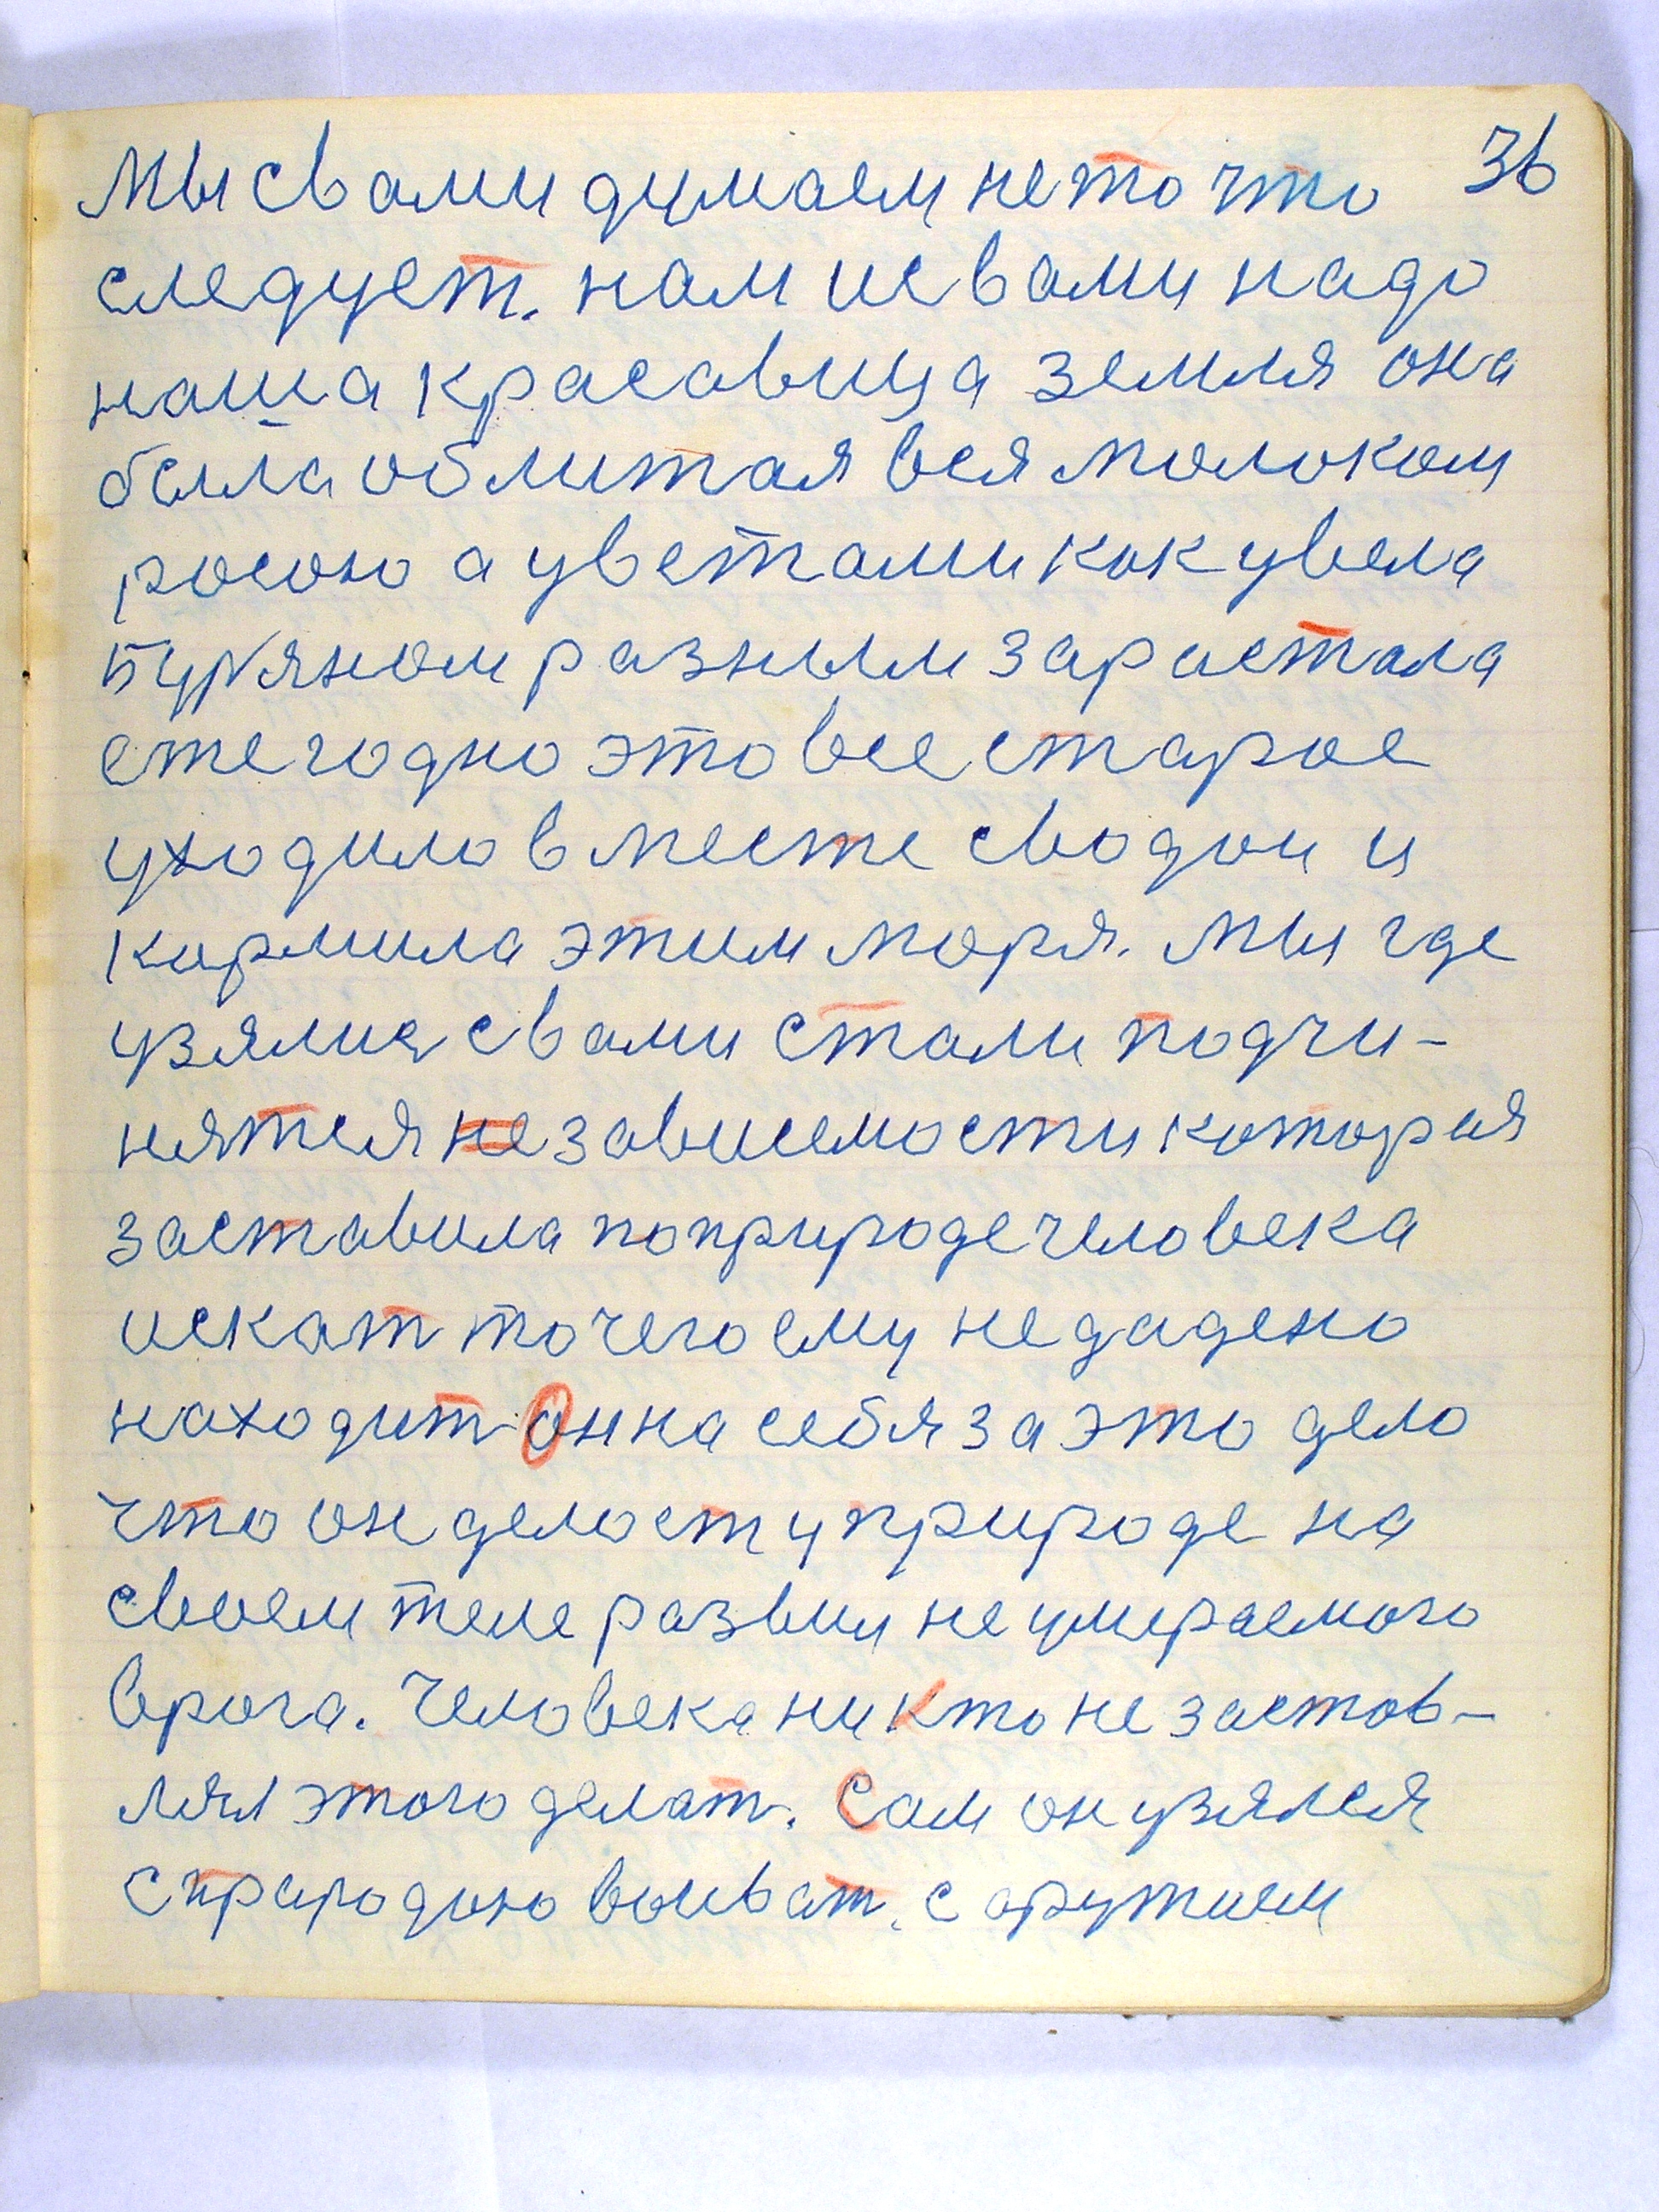 Мы свами думаем нето что 36
следует. нам исвами надо
наша красавица земля она
была облитая вся молоком
росою а цветами как цвела
буряном разным зарастала
ежегодно это все старое
уходило вместе сводои и
кормила этим моря. Мы где
узялися свами стали подчи-
нятся независемости которая
заставила поприроде человека
искат то чего ему недадено
находит он на себя за это дело
что он делает у природе на
своем теле развил неумераемого
врага. Человека никто не застав-
лял этого делат. Сам он узялся
с природою воиват. с аружием